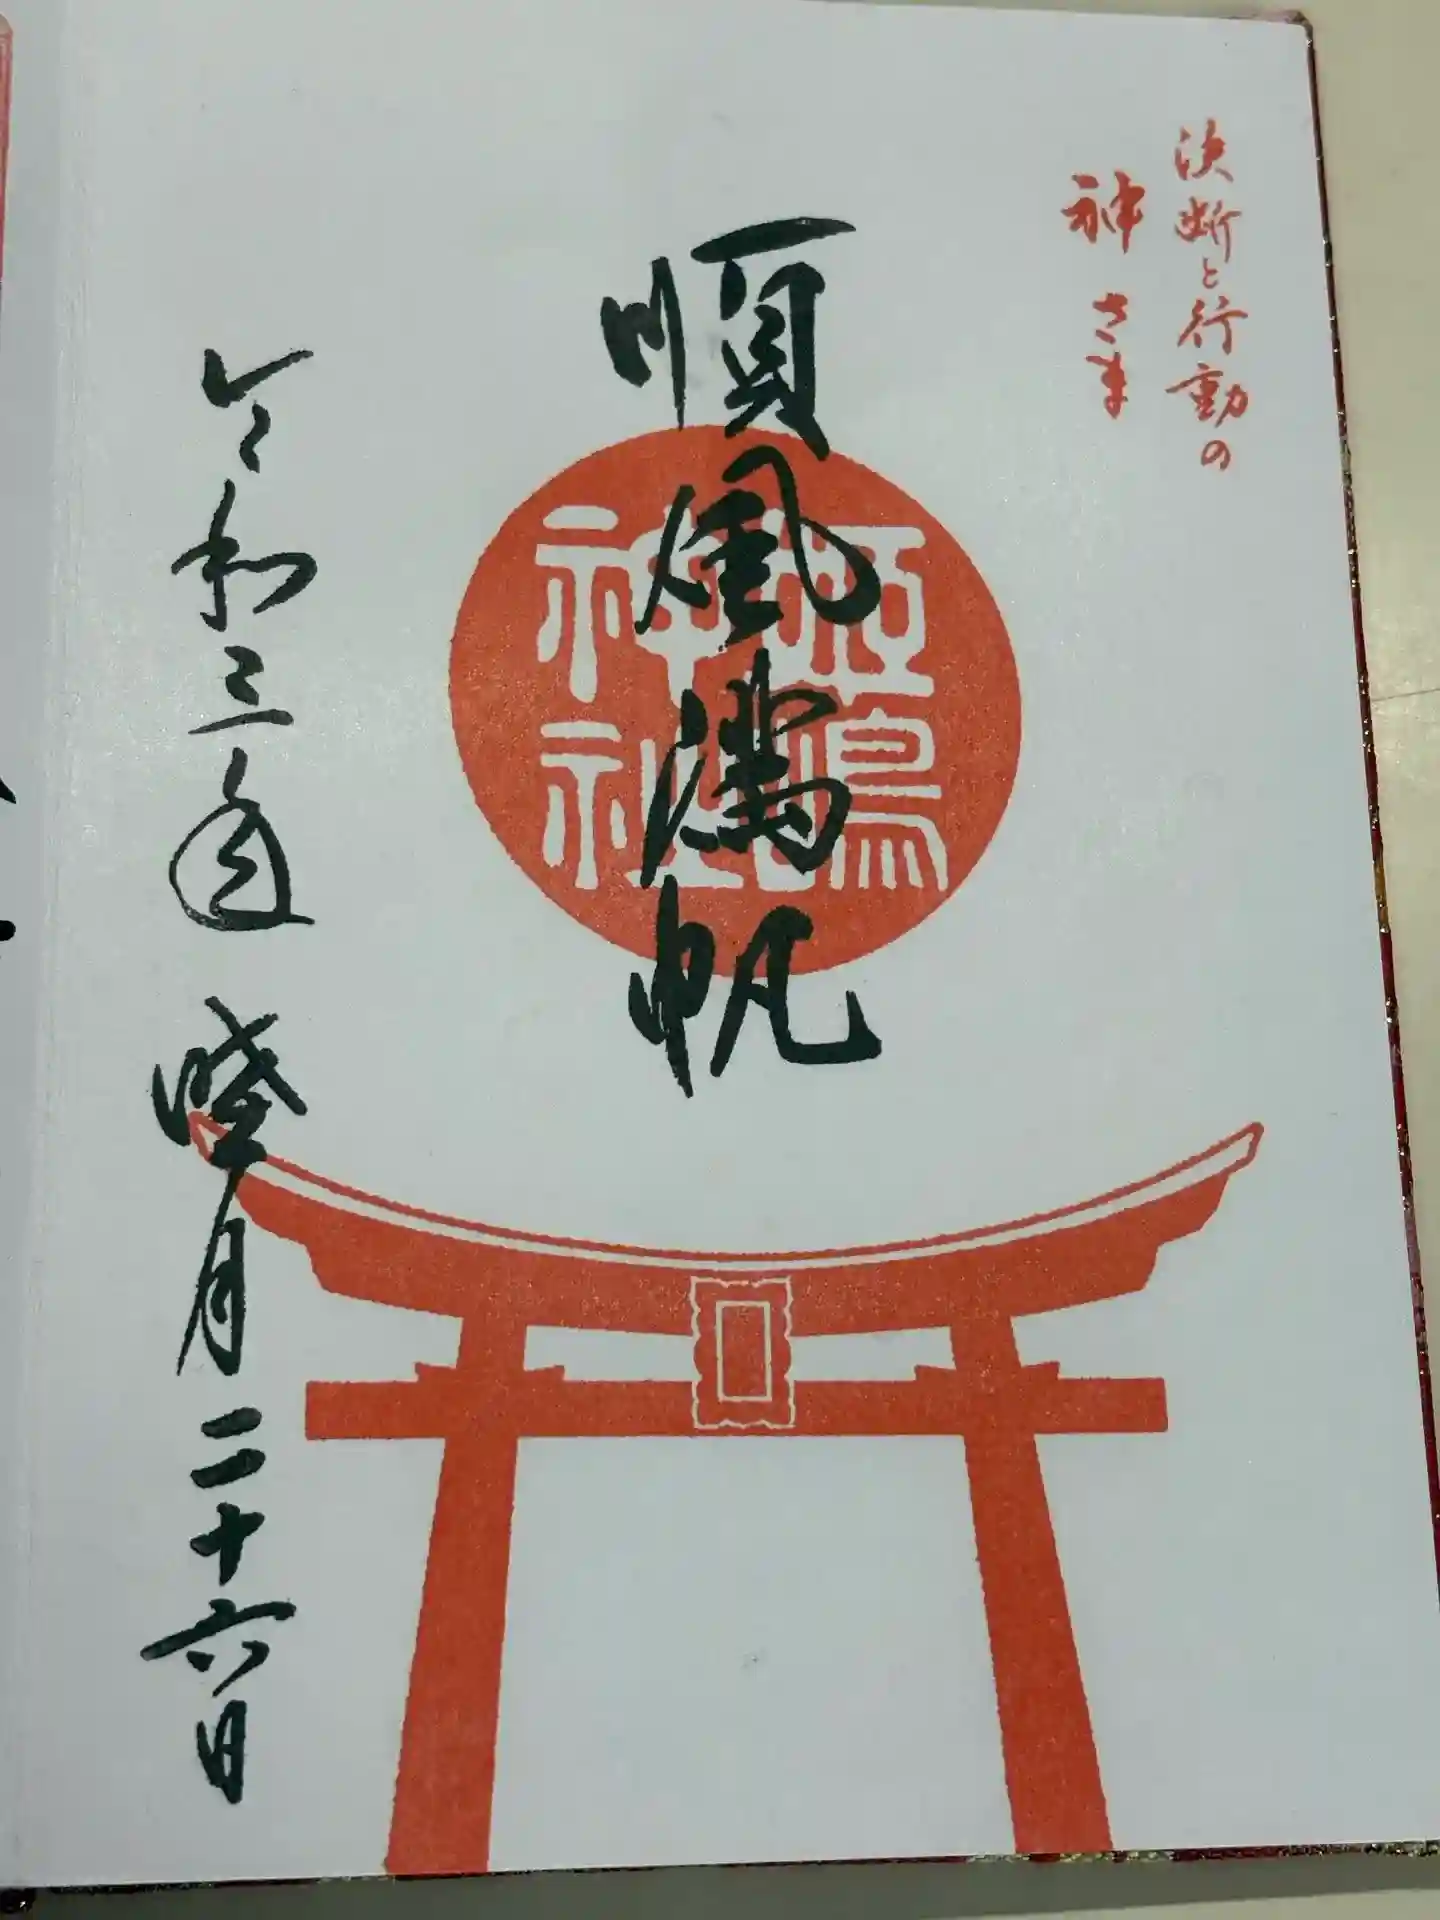 決断と行動の
神さま
順風満帆
姫嶋
神社
令和三年 睦月二十六日